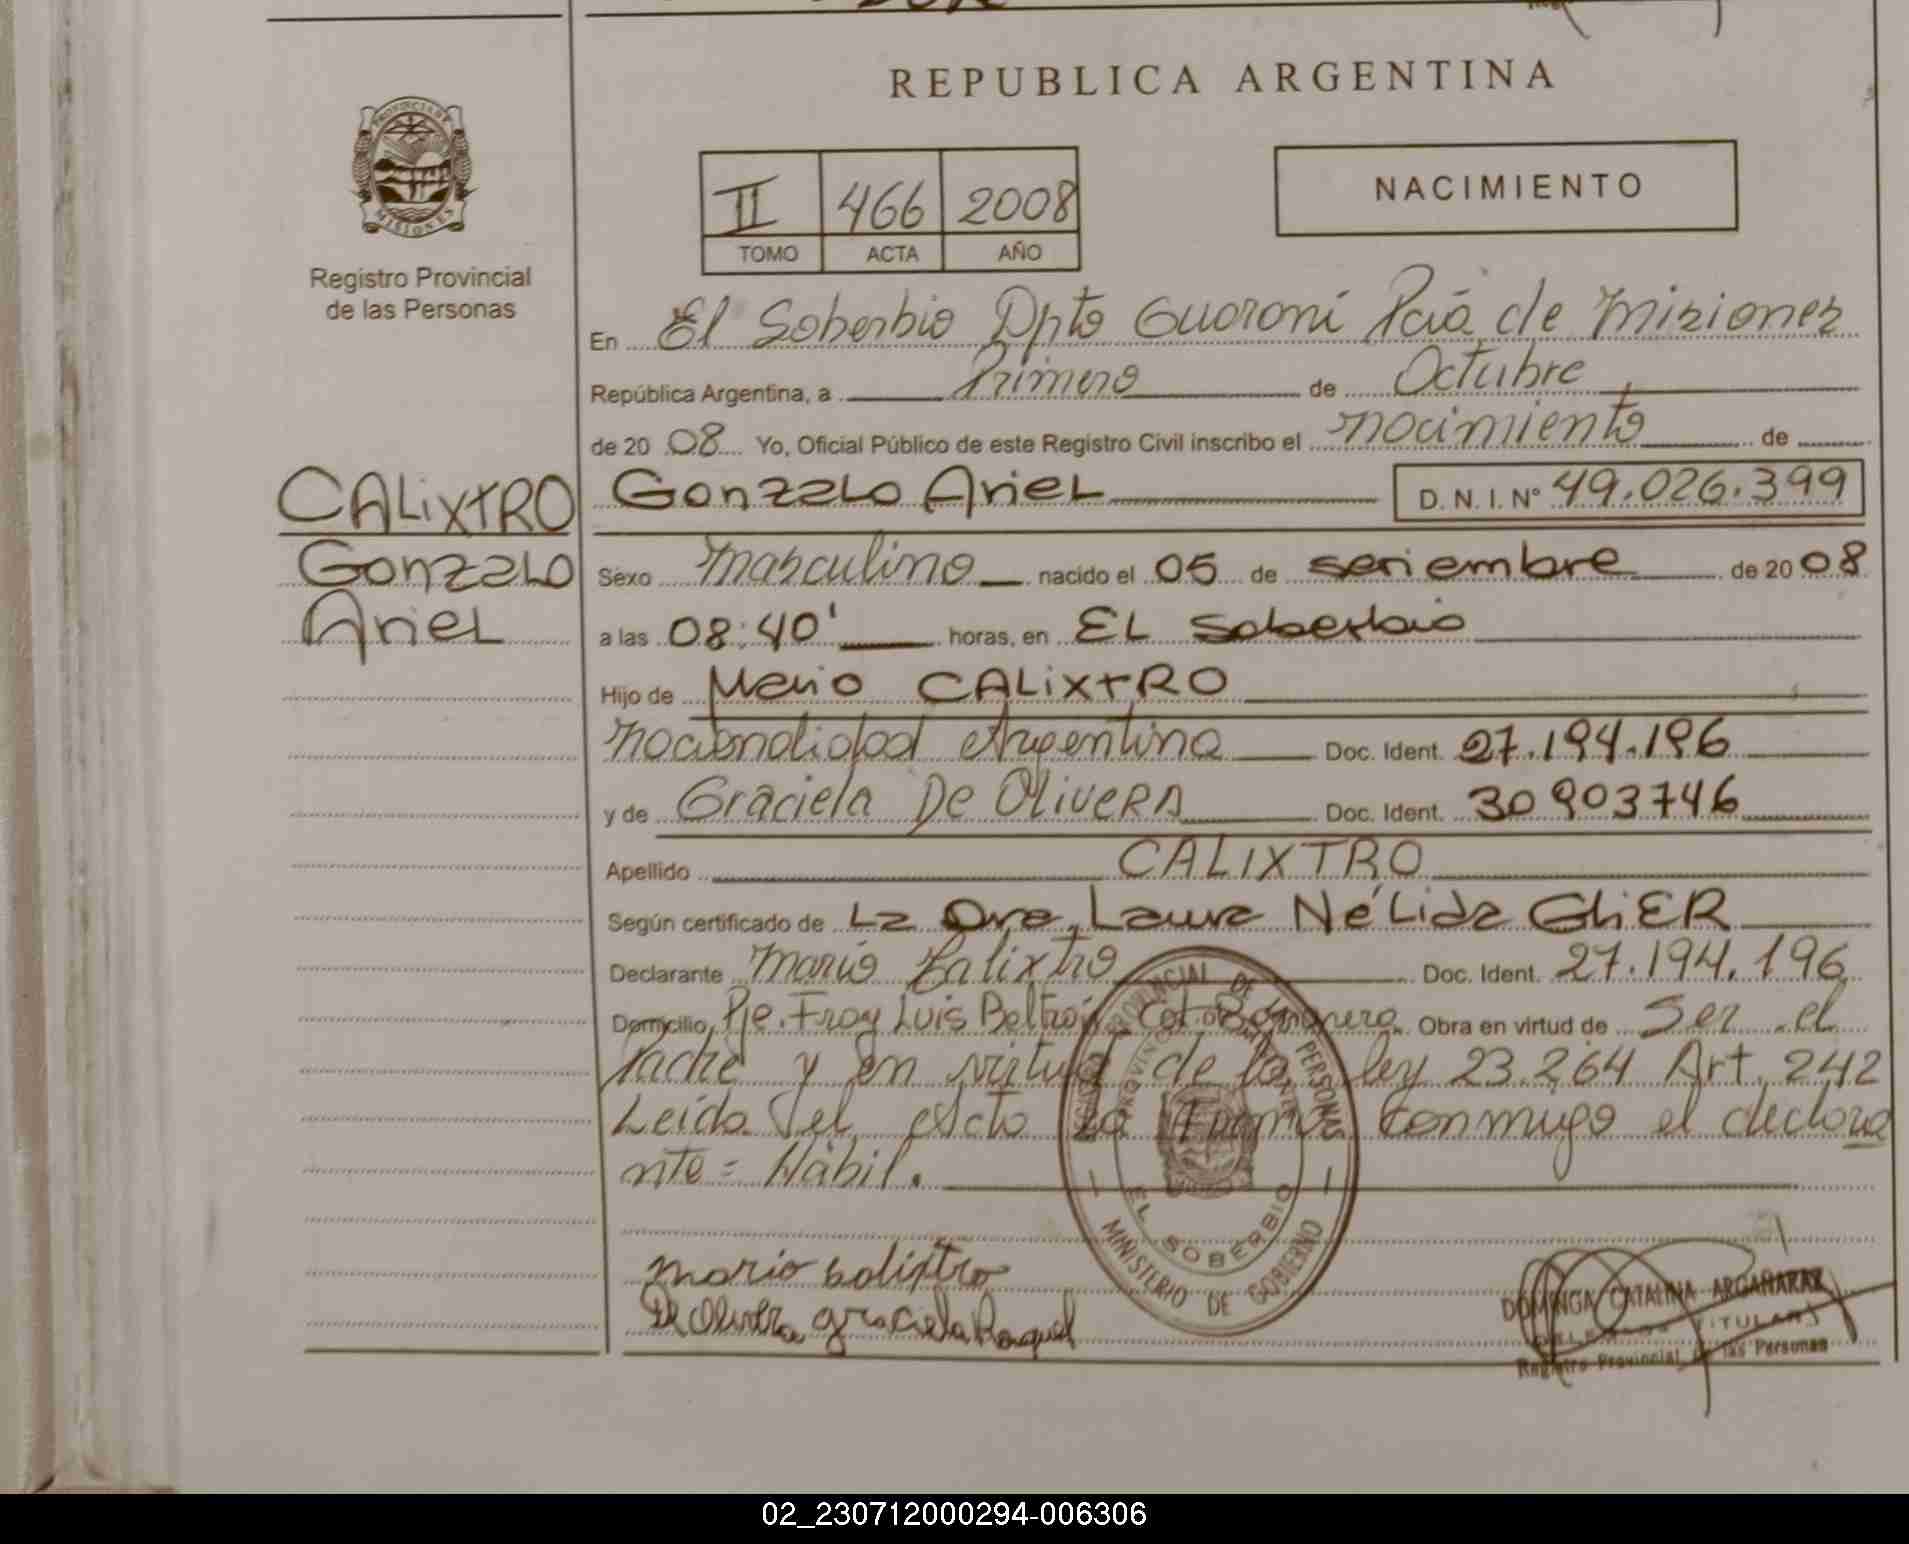 REPUBLICA ARGENTINA
PROVINCIA DE
MISIONES
Registro Provincial
de las Personas
II 466 2008
TOMO ACTA AÑO
NACIMIENTO
En El Soberbio Dpto Guaraní Pcia de Misiones
República Argentina, a Primero de Octubre
de 20 08 Yo, Oficial Público de este Registro Civil inscribo el nacimiento de
CALixtRO
Gonzalo
Ariel
Gonzalo Ariel D. N. I. N° 49.026.399
Sexo masculino nacido el 05 de seriembre de 20 08
a las 08:40' horas, en EL Soberbio
Hijo de Mario CALixtRO
nacionalidad Argentina Doc. Ident. 27.194.196
y de Graciela De OliveRA Doc. Ident. 30903746
Apellido CALIXTRO
Según certificado de La Dra. Laura NéLida GliER
Declarante Mario Calixtro Doc. Ident. 27.194.196
Domicilio Pje. Fray Luis Beltrán Obra en virtud de Ser el
Padre y en virtud de la ley 23.264 Art. 242
Leida el Acta La Firma conmigo el declara
nte = Hábil.
REGISTRO PROVINCIAL DE LAS PERSONAS
EL SOBERBIO
MINISTERIO DE GOBIERNO
mario calixtro
De Olivera graciela Raquel
DOMINGA CATALINA ARGAÑARAZ
DELEGADA TITULAR
Registro Provincial de las Personas
02_230712000294-006306